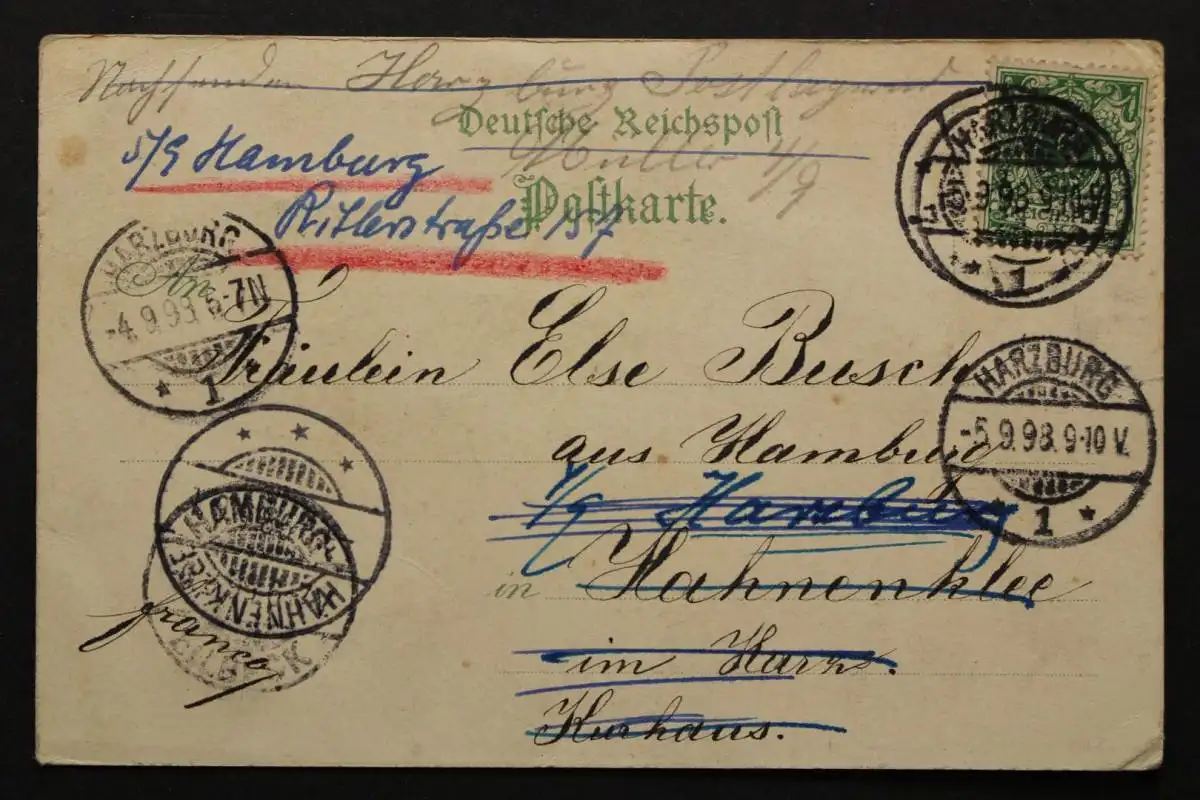 Nachsenden Harzburg Postlagernd
Deutsche Reichspost
Müller 4/9
5/9 Hamburg
Postkarte.
Ritterstraße 157
HARZBURG
9.98. 9-10 V.
1
HARZBURG
-4.9.98. 6-7N
1
An
Fräulein Else Busch
HARZBURG
-5.9.98. 9-10 V.
1
aus Hamburg
4/9 Harzburg
in Hahnenklee
HAMBURG
HAHNENKLEE
franco
im Harz.
Kurhaus.